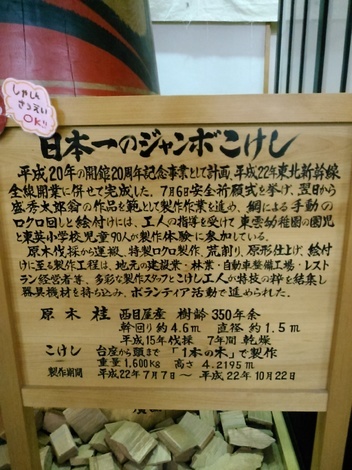 しゃしん
さつえい
OK!!
日本一のジャンボこけし
平成20年の開館20周年記念事業として計画、平成22年東北新幹線
全線開業に併せて完成した。7月6日安全祈願式を挙げ、翌日から
盛秀太郎翁の作品を範として製作作業を進め、綱による手動の
ロクロ回しと絵付けには、工人の指導を受けて東雲幼稚園の園児
と東英小学校児童90人が製作体験に参加している。
原木伐採から運搬、特製ロクロ製作、荒削り、原形仕上げ、絵付
けに至る製作工程は、地元の建設業・林業・自動車整備工場・レスト
ラン経営者等、多彩な製作スタッフとこけし工人が特技の粋を結集し
器具機材を持ち込み、ボランティア活動で進められた。
原木 桂 西目屋産 樹齢 350年余
幹回り約4.6m 直径約1.5m
平成15年伐採 7年間 乾燥
こけし 台座から頭まで「1本の木」で製作
重量1,600kg 高さ 4.2195m
製作期間 平成22年7月7日～平成22年10月22日